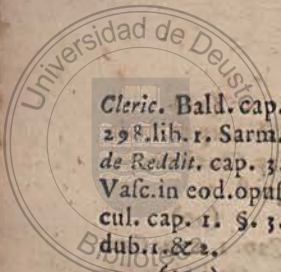 Universidad de Deusto
Cleric. Bald. cap.
298. lib. 1. Sarm.
de Reddit. cap. 3
Vasc. in eod. opus
cul. cap. 1. §. 3.
dub. 1. & 2.
Biblioteca